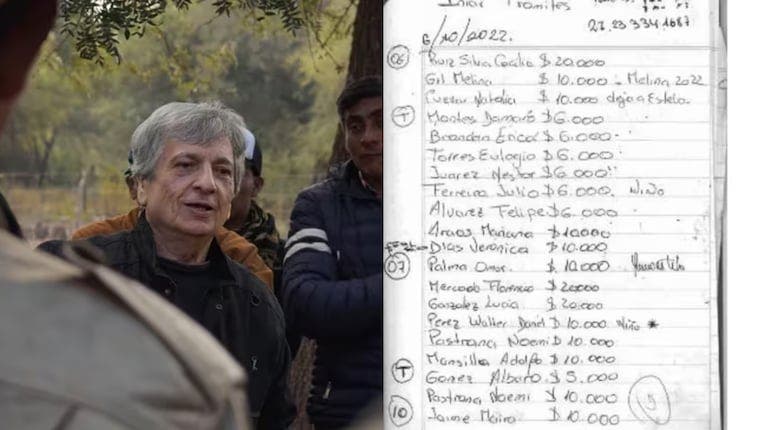 Iniar Tramites
27.23 334.1687
6/10/2022.
06 Ruiz Silva Cecilia $ 20.000
Gil Melina $ 10.000 - Melina 2022
Cuevas Natalia $ 10.000 deja a Estela
T Montes Damaró $ 6.000
Brandan Erica $ 6.000
Torres Eulogio $ 6.000
Juarez Nestor $ 6.000
Ferreira Julio $ 6.000 Niño
Alvarez Felipe $ 6.000
Araos Mariana $ 10000
Dias Veronica $ 10.000
07 Palma Omar $ 10.000
Mercado Florencio $ 20000
Gonzalez Lucia $ 20.000
Perez Walter Daniel $ 10.000 Niño *
Pastrana Noemi $ 10.000
Mansilla Adolfo $ 10.000
T Gomez Albaro $ 5.000
Pastrana Noemi $ 10.000 5
10 Jaime Moira $ 10.000